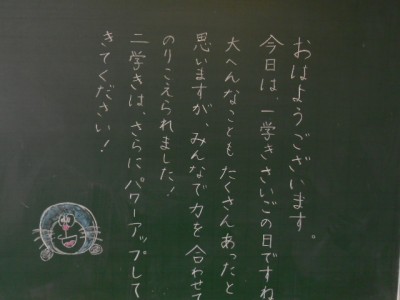 おはようございます。
今日は、一学きさいごの日ですね
大へんなことも たくさんあったと
思いますが、みんなで力を合わせて
のりこえられました！
二学きは、さらに パワーアップして
きてください！